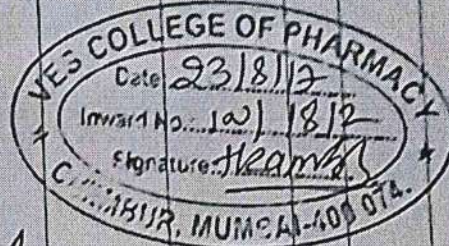 VES COLLEGE OF PHARMACY
Date 23/8/12
Inward No.
Signature.
MUMBAI-400 074.